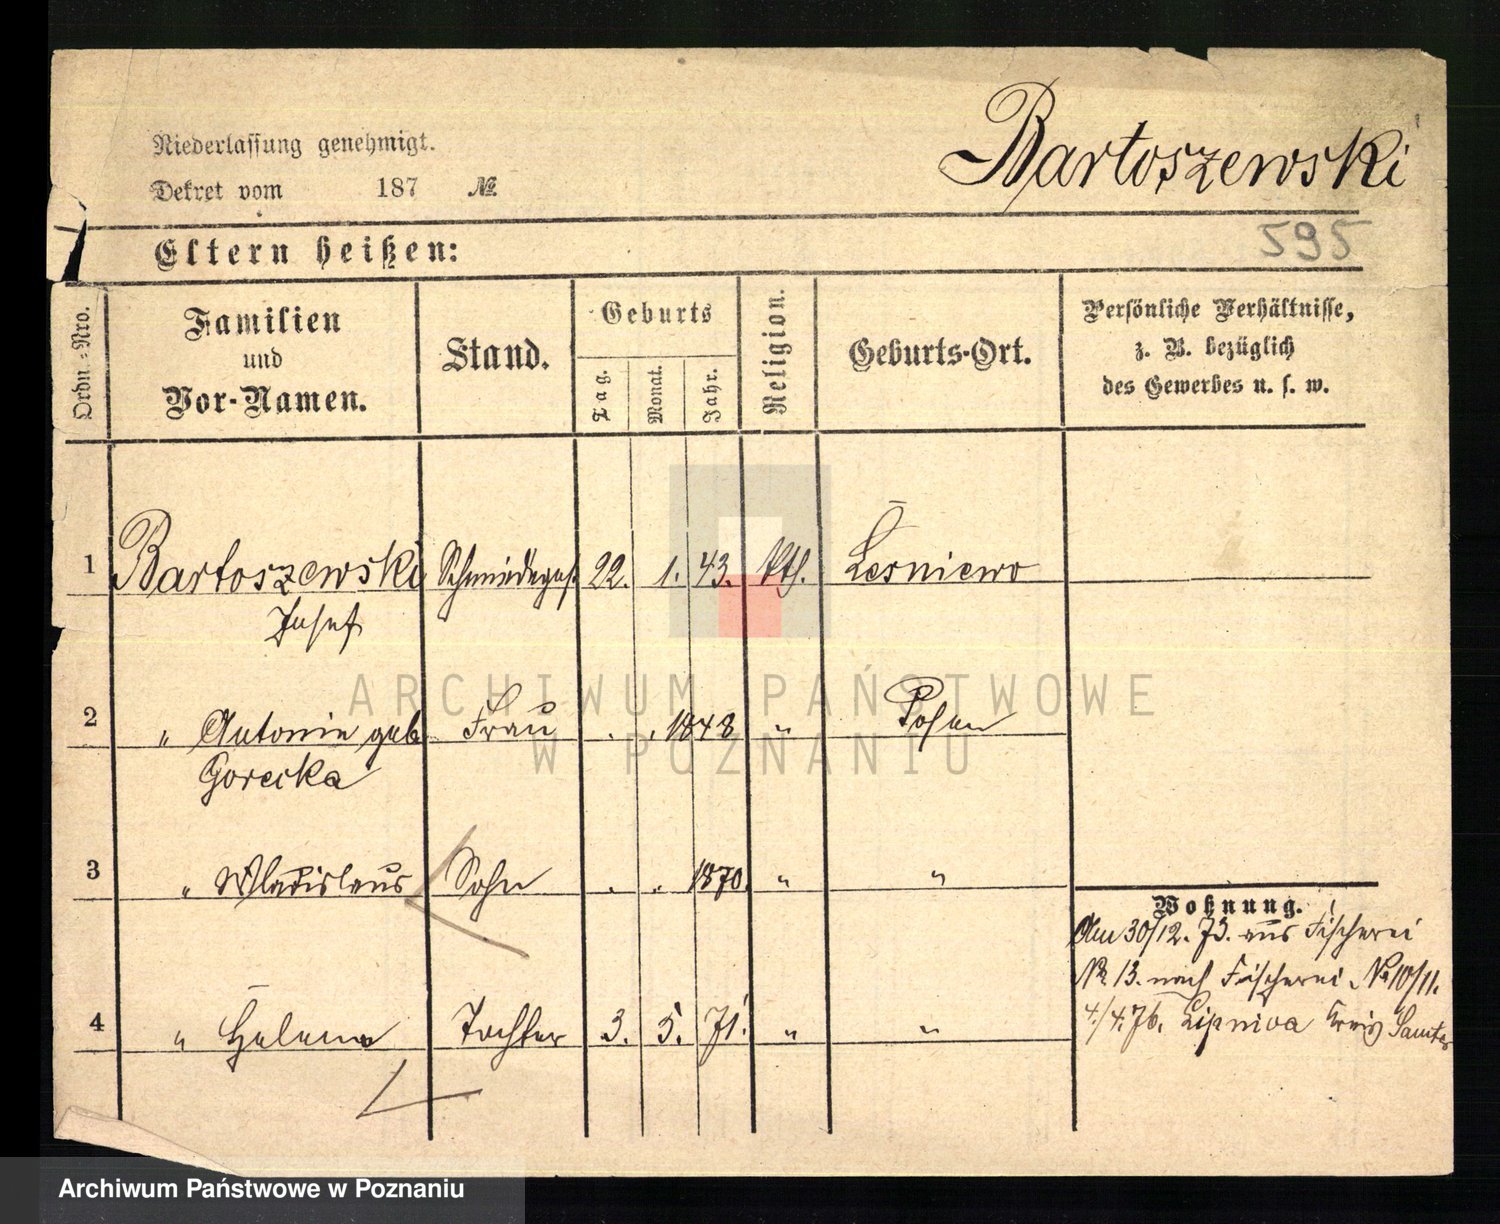 Bartoszewski
Niederlassung genehmigt.
Dekret vom 187 №
595
Eltern heißen:
Ordn.-Nro.
Familien
und
Vor-Namen.
Stand.
Geburts
Tag.
Monat.
Jahr.
Religion.
Geburts-Ort.
Persönliche Verhältnisse,
z. B. bezüglich
des Gewerbes u. s. w.
1 Bartoszewski Schmiedeges. 22. 1. 43. kth. Leśniewo
Josef
2 " Antonie geb Frau . . 1848 " Posen
Gorecka
3 " Wladislaus Sohn . . 1870. " "
4 " Helena Tochter 3. 5. 71. " "
Wohnung.
Am 30/12. 73. aus Fischerei
№ 13. nach Fischerei № 10/11.
4./4. 76. Lipnica Kreis Samter
ARCHIWUM PAŃSTWOWE
W POZNANIU
Archiwum Państwowe w Poznaniu